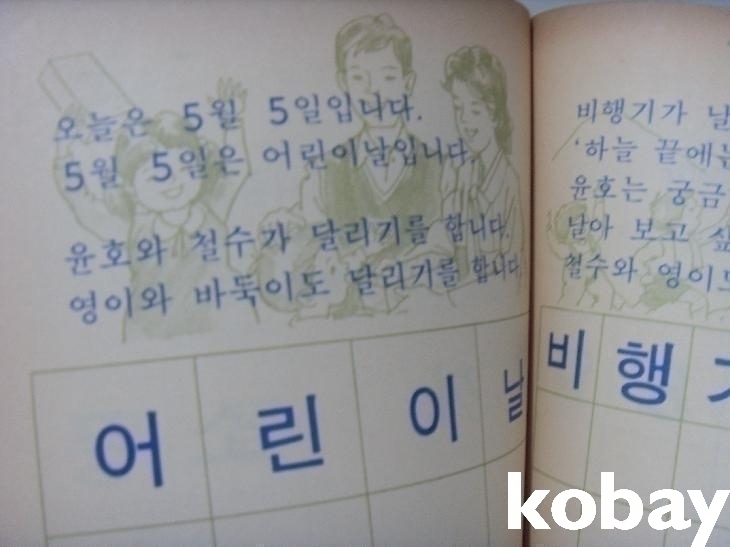 오늘은 5월 5일입니다.
5월 5일은 어린이날입니다.
윤호와 철수가 달리기를 합니다.
영이와 바둑이도 달리기를 합니다.
어 린 이 날
비행기가 날
‘하늘 끝에는
윤호는 궁금
날아 보고 싶
철수와 영이도
비 행
kobay